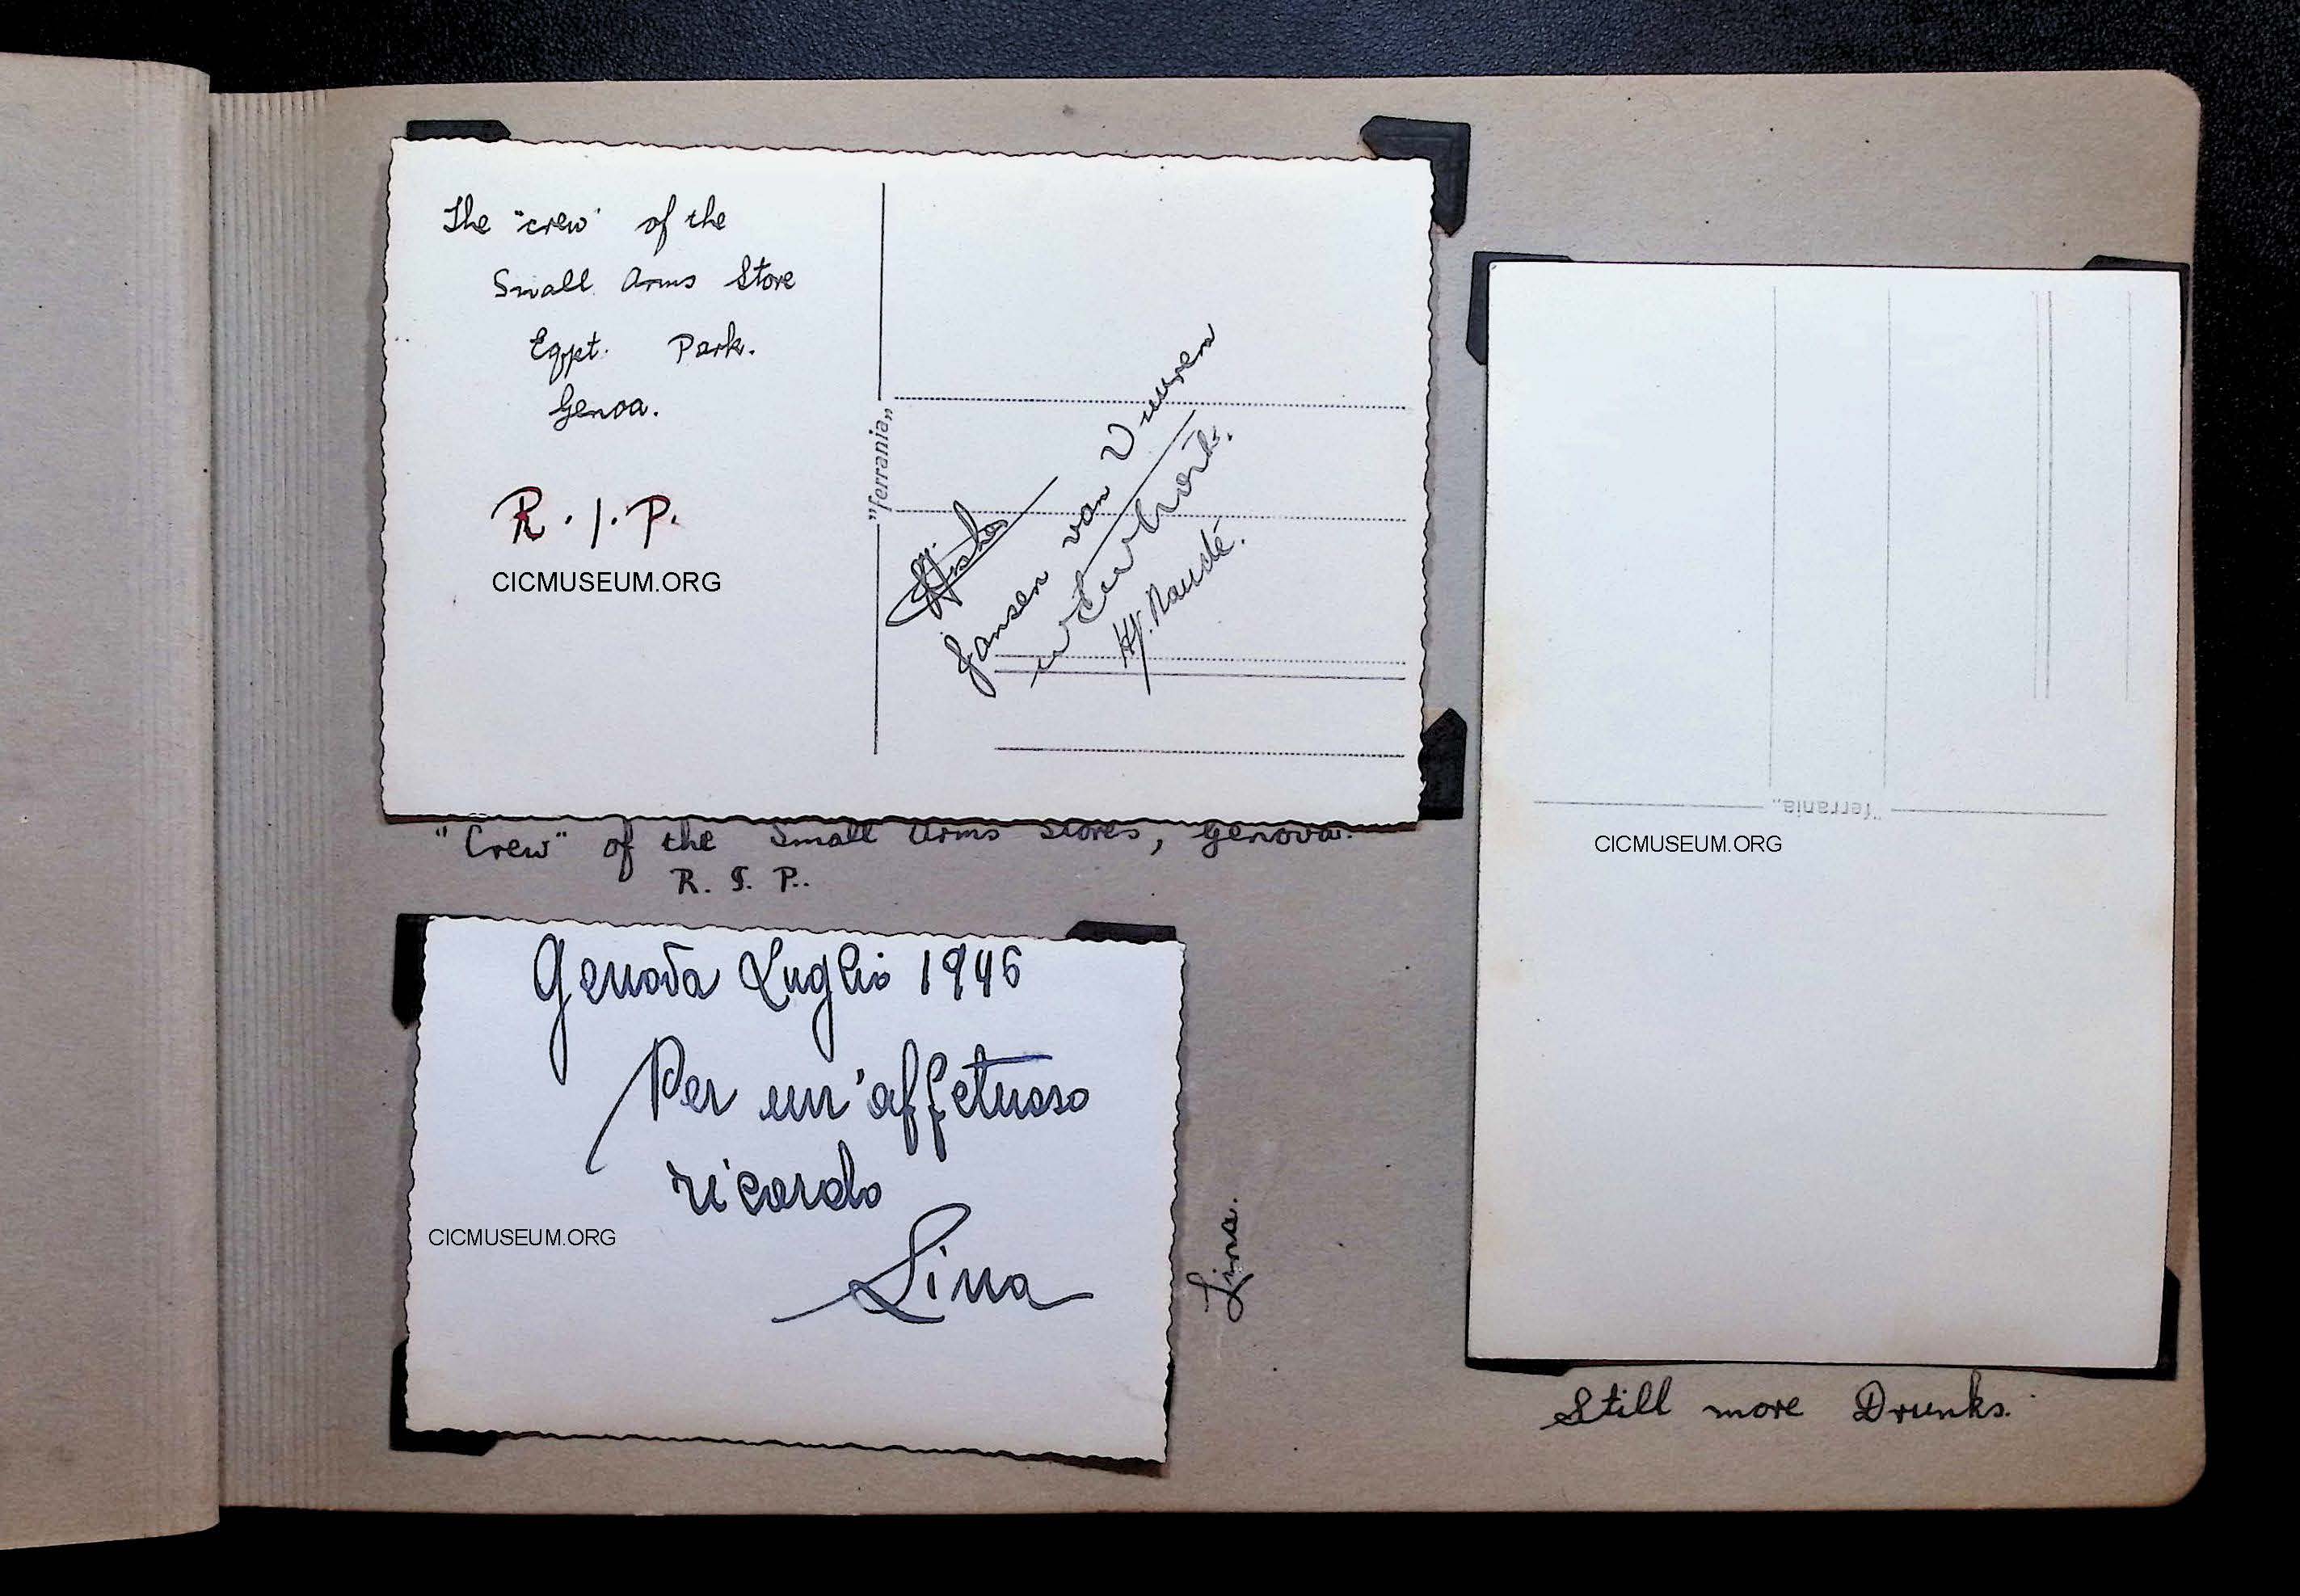 The "crew" of the
Small Arms Store
Eqpt. Park.
Genoa.
R.I.P.
CICMUSEUM.ORG
"ferrania"
Jansen van Vuuren
Naudé.
"Crew" of the Small Arms Stores, Genova.
R. I. P..
Genova Luglio 1946
Per un'affetuoso
ricordo
Lina
CICMUSEUM.ORG
Lina.
"ferrania"
CICMUSEUM.ORG
Still more Drunks.